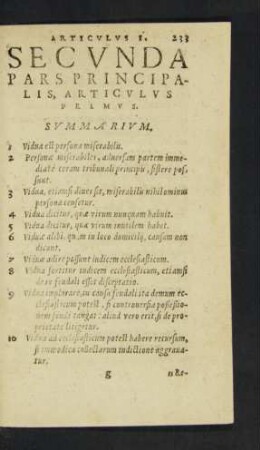 ARTICVLVS I. 233
SECVNDA
PARS PRINCIPA-
LIS, ARTICVLVS
PRIMVS.
SVMMARIVM.
1 Vidua est persona miserabilis.
2 Personæ miserabiles, aduersam partem imme-
diatè coram tribunali principis, sistere pos-
sunt.
3 Vidua, etiamsi diues sit, miserabilis nihilominus
persona censetur.
4 Vidua dicitur, quæ virum nunquam habuit.
5 Vidua dicitur, quæ virum inutilem habet.
6 Viduæ alibi, quam in loco domicilij, causam non
dicunt.
7 Viduæ adire possunt iudicem ecclesiasticum.
8 Vidua sortitur iudicem ecclesiasticum, etiamsi
de re feudali esset disceptatio.
9 Vidua implorare, in causa feudali ita demum ec-
clesiasticum potest, si controuersia possessio-
nem feudi tangat: aliud verò erit, si de pro-
prietate litigetur.
10 Vidua ad ecclesiasticum potest habere recursum,
si immodica collectarum indictione aggraua-
tur.
g